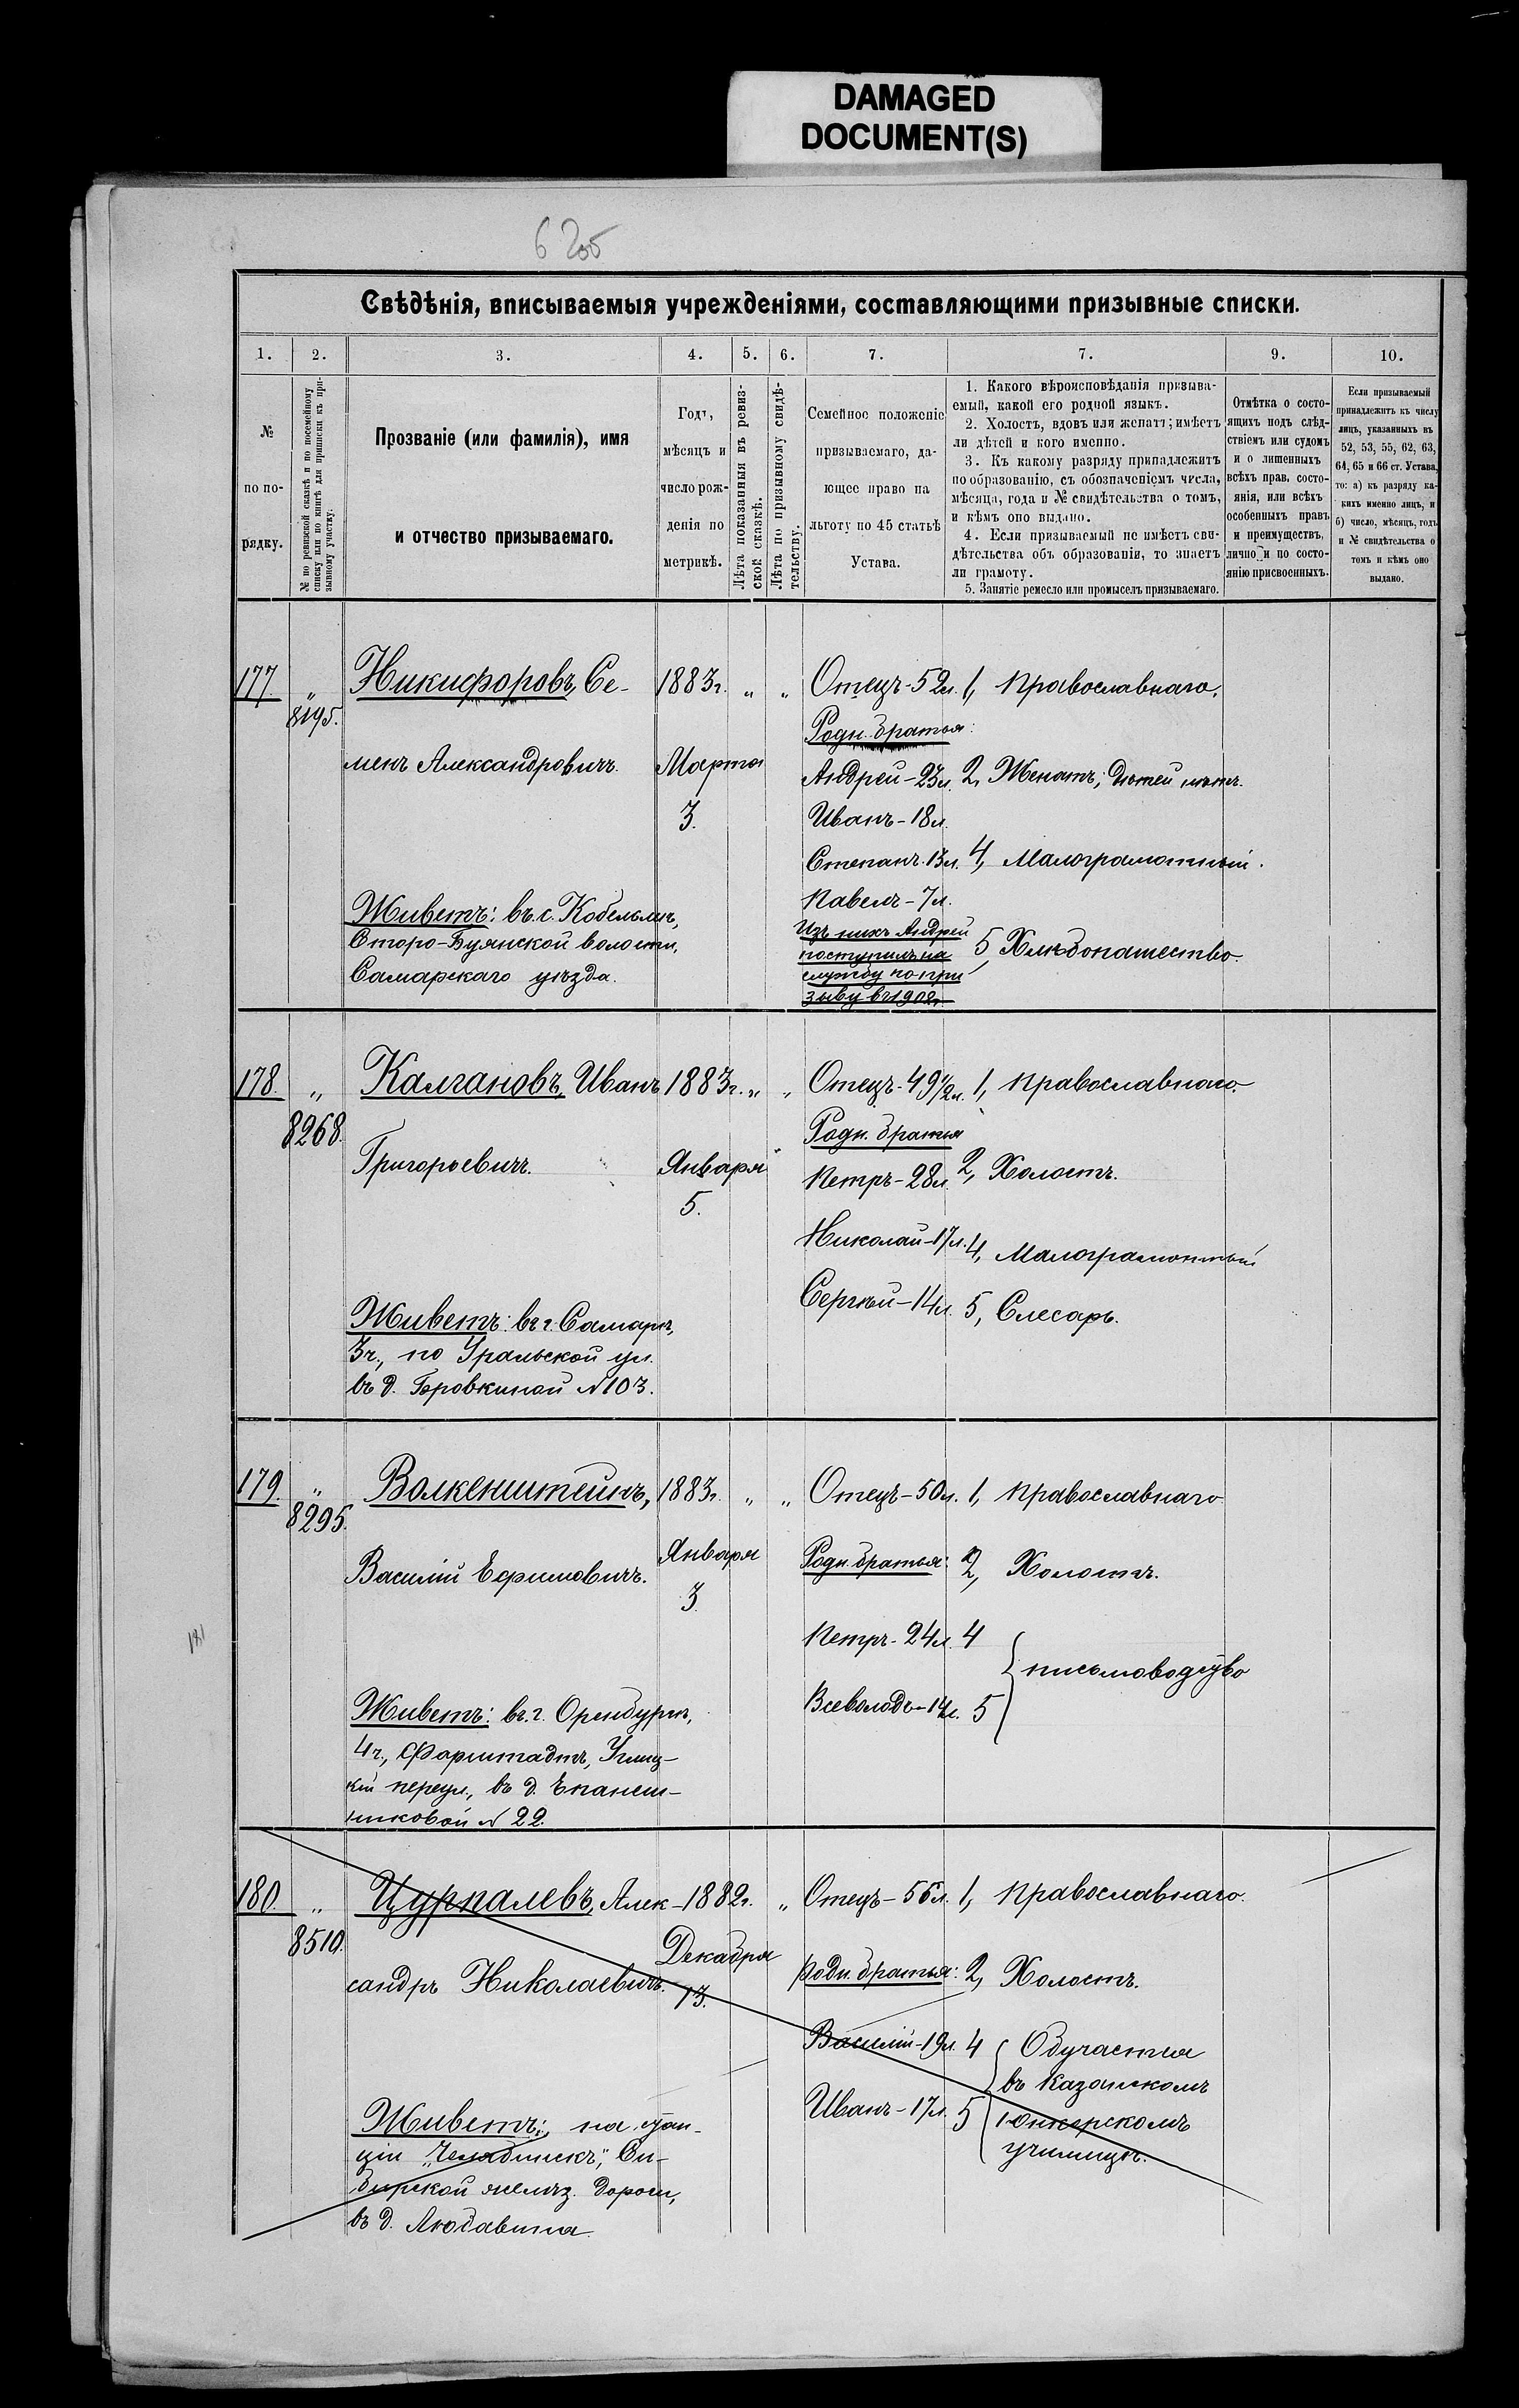 DAMAGED
DOCUMENT(S)
Свѣдѣнія, вписываемыя учрежденіями, составляющими призывные списки.
1. 2. 3. 4. 5. 6. 7. 7. 9. 10.
№
по по-
рядку.
№ по ревизской сказкѣ и по посемейному
списку или по книгѣ для приписки къ при-
зывному участку.
Прозваніе (или фамилія), имя
и отчество призываемаго.
Годъ,
мѣсяцъ и
число рож-
денія по
метрикѣ.
Лѣта показанныя въ ревиз-
ской сказкѣ.
Лѣта по призывному свидѣ-
тельству.
Семейное положеніе
призываемаго, да-
ющее право на
льготу по 45 статьѣ
Устава.
1. Какого вѣроисповѣданія призыва-
емый, какой его родной языкъ.
2. Холостъ, вдовъ или женатъ; имѣетъ
ли дѣтей и кого именно.
3. Къ какому разряду принадлежитъ
по образованію, съ обозначеніемъ числа,
мѣсяца, года и № свидѣтельства о томъ,
и кѣмъ оно выдано.
4. Если призываемый не имѣетъ сви-
дѣтельства объ образованіи, то знаетъ
ли грамоту.
5. Занятіе ремесло или промыселъ призываемаго.
Отмѣтка о состо-
ящихъ подъ слѣд-
ствіемъ или судомъ
и о лишенныхъ
всѣхъ прав, состо-
янія, или всѣхъ
особенныхъ правъ
и преимуществъ,
лично и по состо-
янію присвоенныхъ.
Если призываемый
принадлежитъ къ числу
лицъ, указанныхъ въ
52, 53, 55, 62, 63,
64, 65 и 66 ст. Устава,
то: а) къ разряду ка-
кихъ именно лицъ, и
б) число, мѣсяцъ, годъ
и № свидѣтельства о
томъ и кѣмъ оно
выдано.
177. „ Никифоровъ, Се- 1883г. „ „ Отецъ-52л. 1, Православнаго.
8195.
Родн. братья:
менъ Александровичъ. Марта Андрей-23л. 2, Женатъ; дѣтей нѣтъ.
3. Иванъ-18л.
Степанъ-13л. 4, Малограмотный.
Павелъ-7л.
Живетъ: въ с. Кобельмѣ,
Старо-Буянской волости,
Самарскаго уѣзда.
Изъ нихъ Андрей
поступилъ на
службу по при
зыву въ 1902г.
5, Хлѣбопашество.
178. „ Калгановъ, Иванъ 1883г. „ „ Отецъ-49½л. 1, Православнаго.
8268.
Родн. братья
Григорьевичъ. Января Петръ-28л. 2, Холостъ.
5.
Николай-17л. 4, Малограмотный
Сергѣй-14л. 5, Слесарь.
Живетъ: въ г. Самарѣ,
3ч., по Уральской ул.
въ д. Боровкиной №103.
179. „ Волкенштейнъ, 1883г. „ „ Отецъ-50л. 1, Православнаго
8295.
Василій Ефимовичъ. Января Родн. братья: 2, Холостъ.
3.
Петръ-24л. 4
письмоводство
Всеволодъ-14л. 5
Живетъ: въ г. Оренбургѣ,
4ч., Форштадтъ, Углиц-
кій переул., въ д. Епанеш-
никовой № 22.
180. „ Цурпалевъ, Алек- 1882г. „ Отецъ-56л. 1, Православнаго.
8510.
сандръ Николаевичъ. Декабря Родн. братья: 2, Холостъ.
13.
Василій-19л. 4 Обучается
въ Казанскомъ
Иванъ-17л. 5 юнкерскомъ
училищѣ.
Живетъ: на стан-
ціи „Челябинскъ“, Си-
бирской желѣз. дороги,
въ д. Любавина.